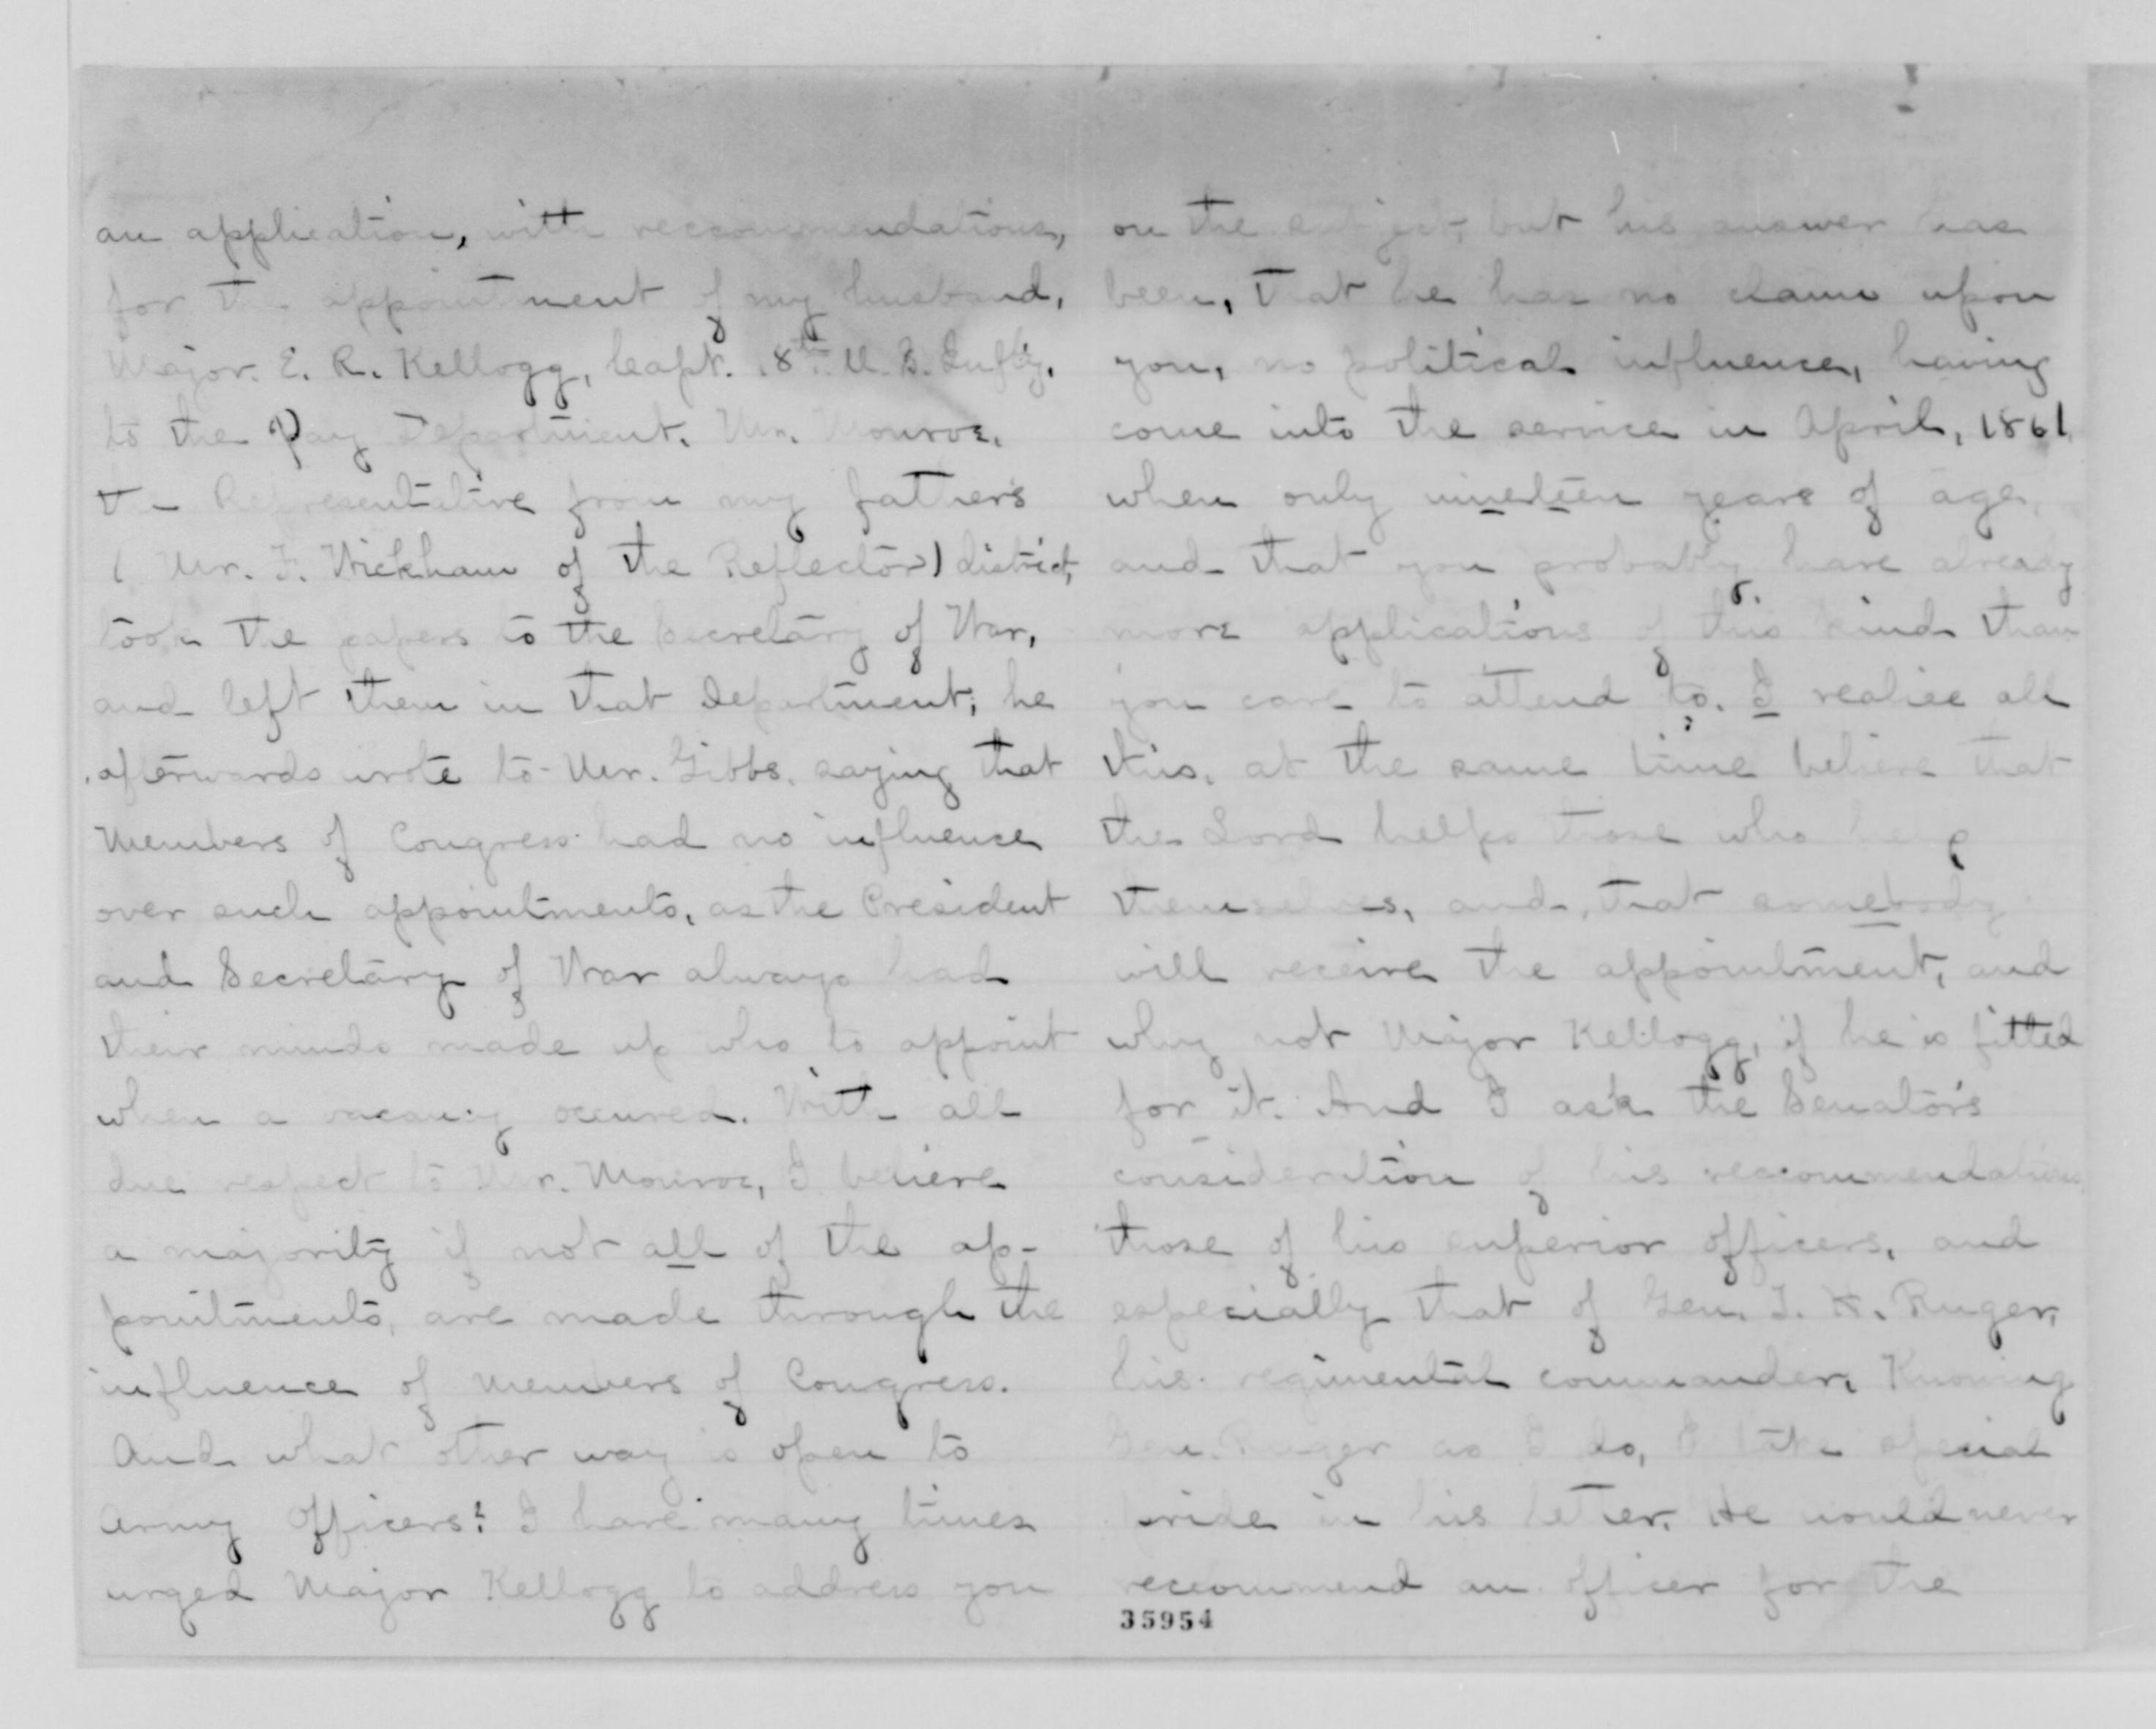 an application, with reccommendations,
for the appointment of my husband,
Major. E. R. Kellogg, Capt. 18th U. S. Infty.
to the Pay Department. Mr. Monroe,
the Representative from my father's
( Mr. F. Wickham of the Reflector) district,
took the papers to the Secretary of War,
and left them in that Department; he
afterwards wrote to Mr. Gibbs, saying that
Members of Congress had no influence
over such appointments, as the President
and Secretary of War always had
their minds made up who to appoint
when a vacancy occured. With all
due respect to Mr. Monroe, I believe
a majority if not all of the ap-
pointments, are made through the
influence of Members of Congress.
And what other way is open to
Army Officers? I have many times
urged Major Kellogg to address you
on the subject, but his answer has
been, that he has no claim upon
you, no political influence, having
come into the service in April, 1861
when only nineteen years of age,
and that you probably have already
more applications of this kind than
you care to attend to. I realize all
this, at the same time believe that
the Lord helps those who help
themselves, and, that somebody
will receive the appointment, and
why not Major Kellogg, if he is fitted
for it. And I ask the Senator's
consideration of his reccommendations
those of his superior officers, and
especially that of Gen. T. H. Ruger,
his regimental commander. Knowing
Gen. Ruger as I do, I take special
pride in his letter. He would never
reccommend an officer for the
35954